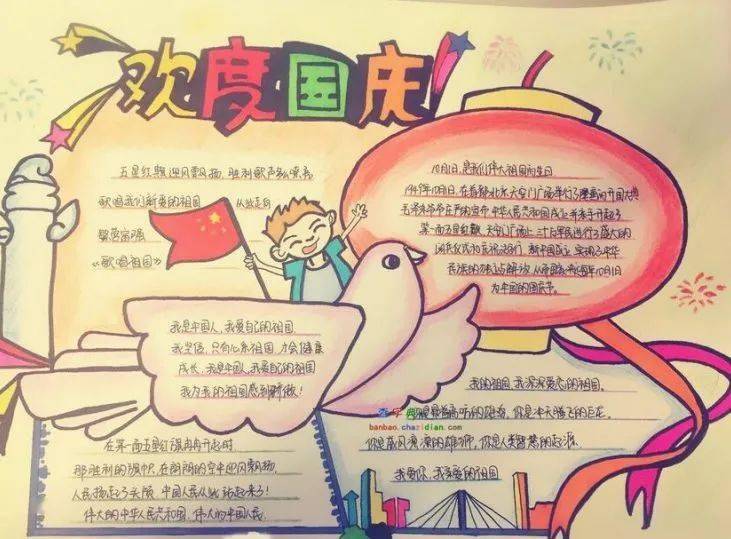 欢度国庆!
五星红旗迎风飘扬,胜利歌声多么嘹亮
歌唱我们亲爱的祖国 从此走向
繁荣富强
《歌唱祖国》
10月1日,是我们伟大祖国的生日
1949年10月1日,在首都北京天安门广场举行了隆重的开国大典
毛泽东 在庄严的宣布 中华人民共和国成立 并亲手升起了
第一面五星红旗 天安门广场上三十万军民进行了盛大的
阅兵仪式和 游行 新中国成立 实现了中华
民族的独立与解放 从 10月1日
为中国的国庆节。
我是中国人,我爱自己的祖国
我坚信,只有心系祖国 才会健康
成长,我是中国人,我爱自己的祖国
我为我的祖国感到骄傲!
我的祖国,我深深爱恋的祖国。
你是 高吭的雄鸡,你是冲天腾飞的巨龙。
你是威风凛凛的雄狮,你是人类智慧的起源。
我爱你,我亲爱的祖国
在第一面五星红旗冉冉升起时
那胜利的旗帜,在朗朗的空中迎风飘扬,
人民扬起了头颅 中国人民从此站起来了!
伟大的中华人民共和国,伟大的中国人民,
查字典
banbao.chazidian.com